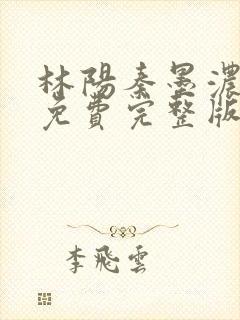 林陽秦墨濃
免費完整版
李飛雲